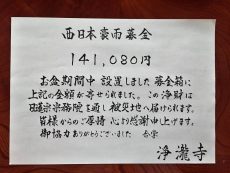 西日本豪雨募金
141,080円
お盆期間中 設置しました 募金箱に
上記の金額が寄せられました。この浄財は
日蓮宗宗務院を通し被災地へ届けられます。
皆様からのご厚持 心より感謝申し上げます。
御協力ありがとうございました 合掌
浄瀧寺